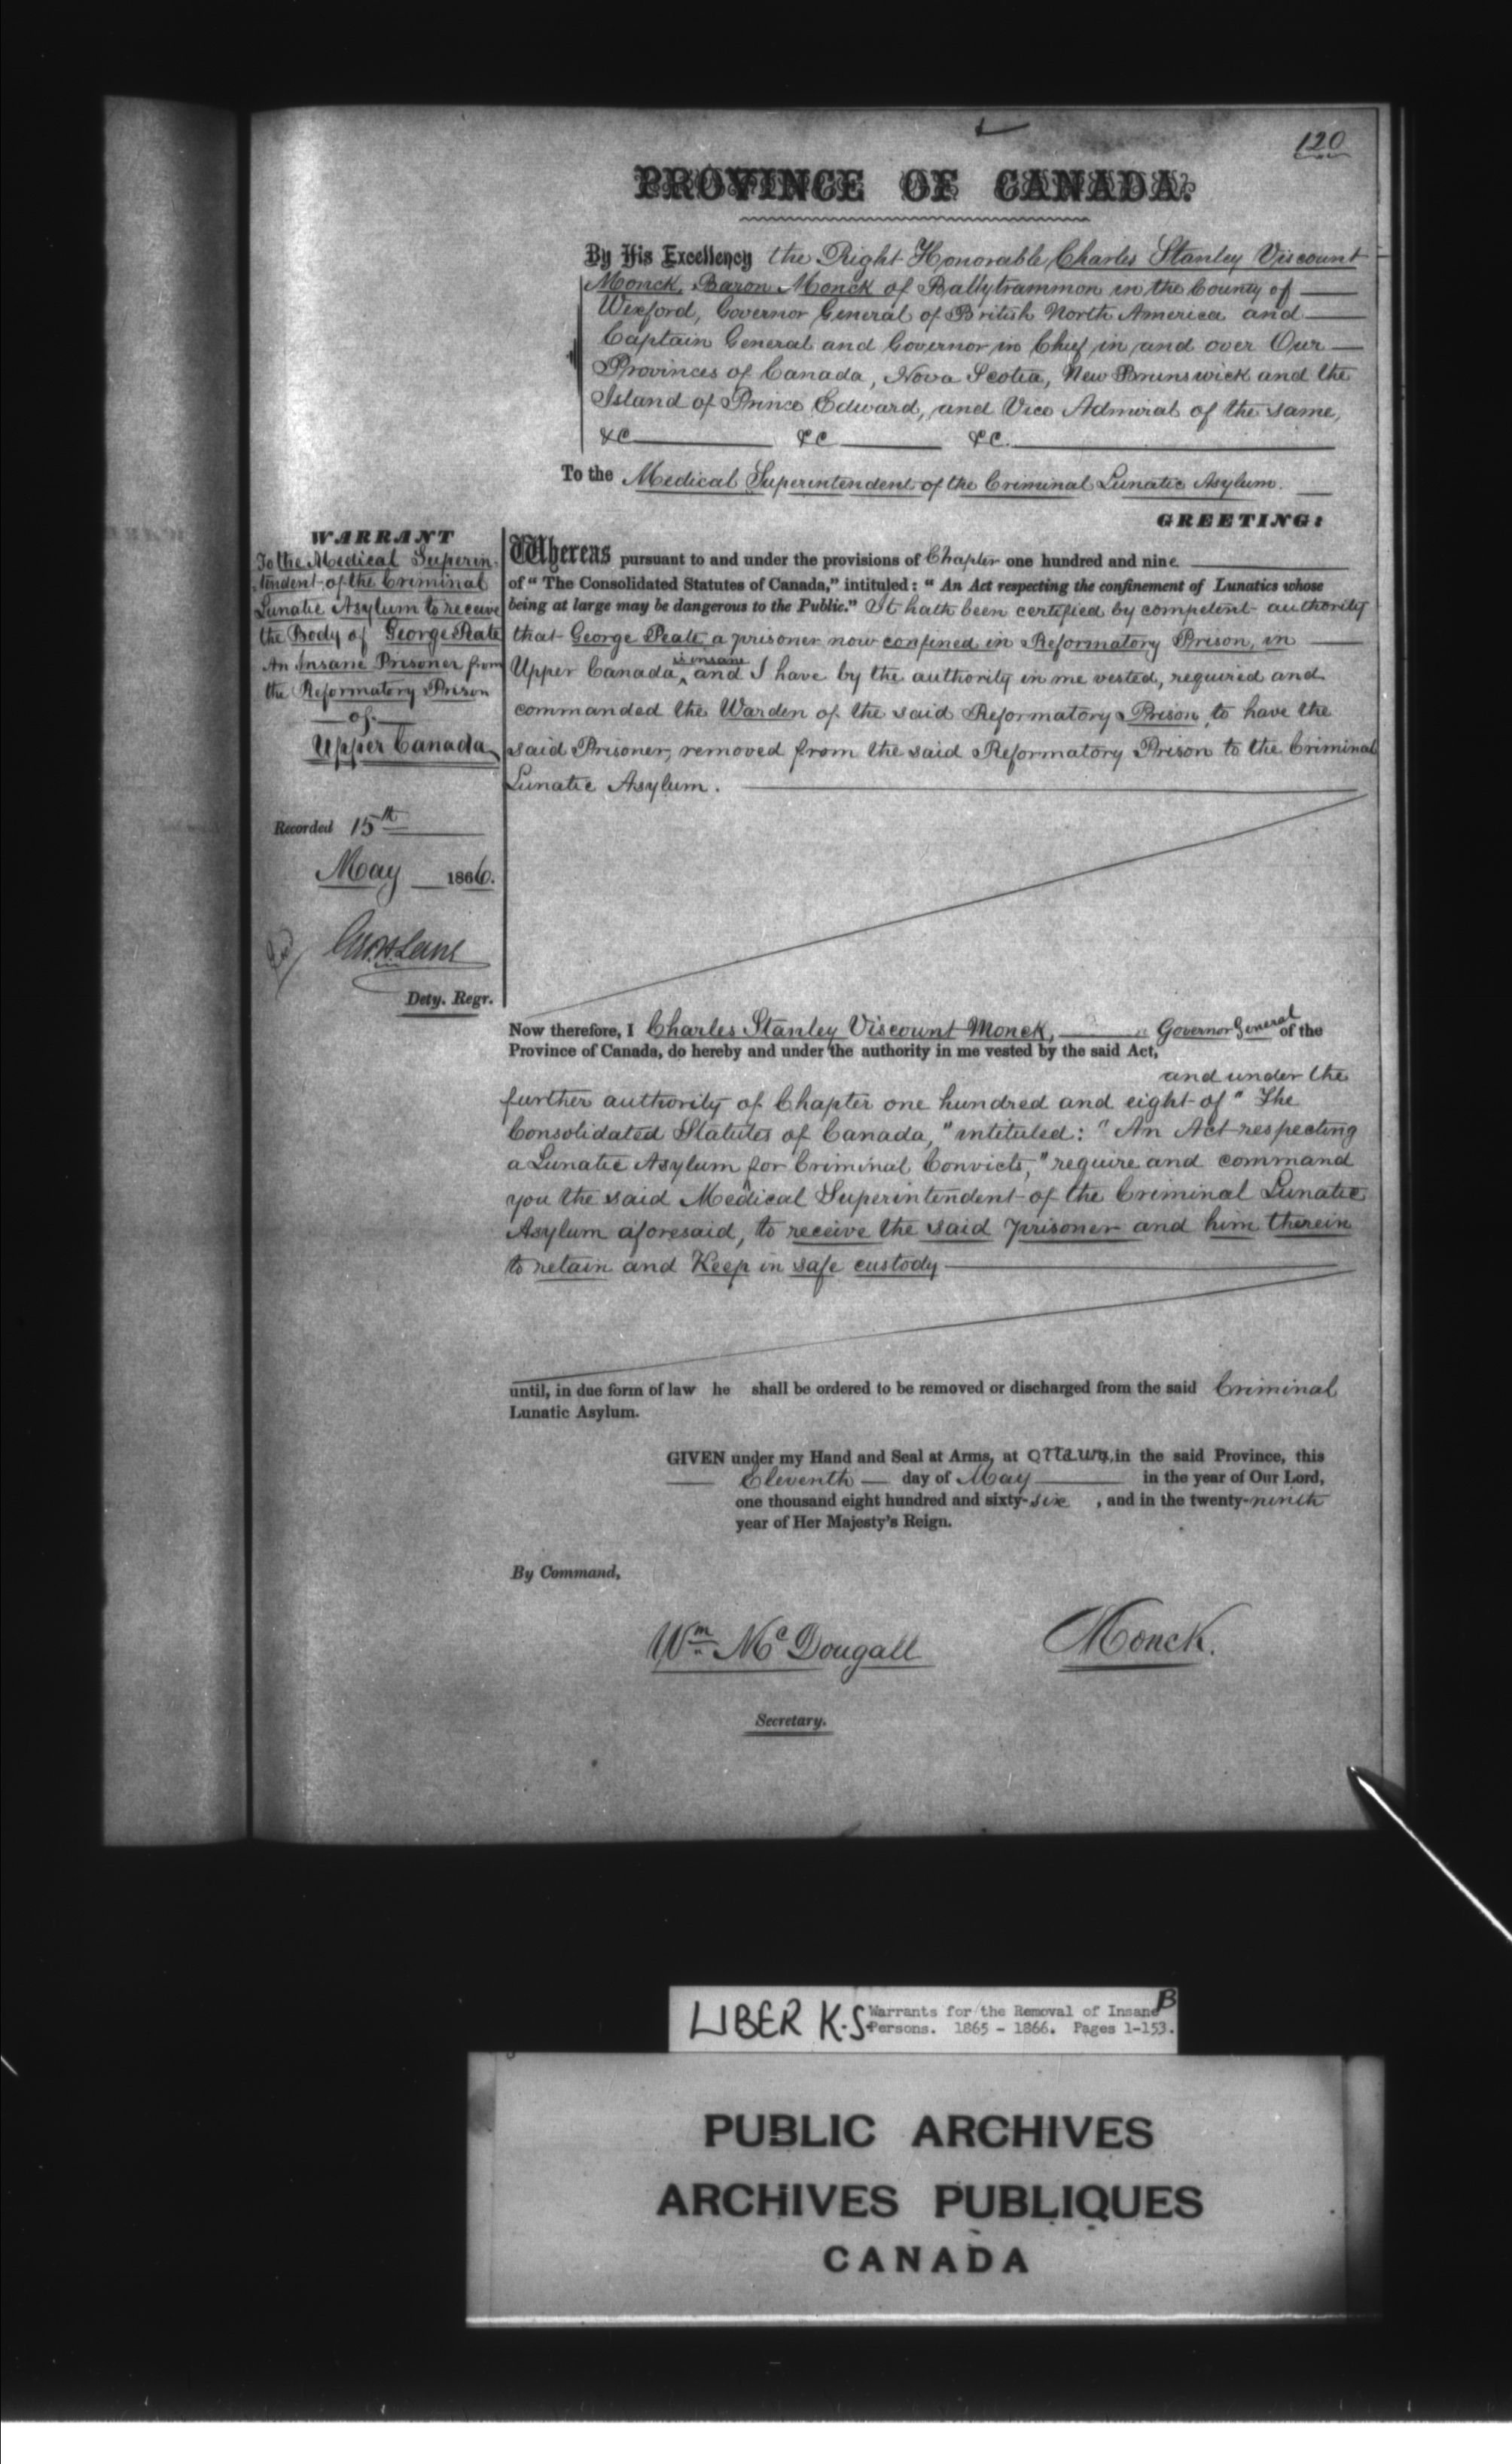 120
PROVINCE OF CANADA.
By His Excellency the Right Honorable Charles Stanley Viscount
Monck, Baron Monck of Ballytrammon in the County of
Wexford, Governor General of British North America and
Captain General and Governor in Chief in and over Our
Provinces of Canada, Nova Scotia, New Brunswick and the
Island of Prince Edward, and Vice Admiral of the same,
&c &c &c.
To the Medical Superintendent of the Criminal Lunatic Asylum.
GREETING:
WARRANT
To the Medical Superin-
tendent of the Criminal
Lunatic Asylum to receive
the Body of George Peate
An Insane Prisoner from
the Reformatory Prison
of
Upper Canada
Recorded 15th
May 1866.
Geo. H. Lane
Dety. Regr.
Whereas pursuant to and under the provisions of Chapter one hundred and nine
of "The Consolidated Statutes of Canada," intituled: "An Act respecting the confinement of Lunatics whose
being at large may be dangerous to the Public." It hath been certified by competent authority
that George Peate a prisoner now confined in Reformatory Prison, in
is insane
Upper Canada, and I have by the authority in me vested, required and
commanded the Warden of the said Reformatory Prison, to have the
said Prisoner, removed from the said Reformatory Prison to the Criminal
Lunatic Asylum.
Now therefore, I Charles Stanley Viscount Monck, Governor General of the
Province of Canada, do hereby and under the authority in me vested by the said Act,
and under the
further authority of Chapter one hundred and eight of "The
Consolidated Statutes of Canada," intituled: "An Act respecting
a Lunatic Asylum for Criminal Convicts," require and command
you the said Medical Superintendent of the Criminal Lunatic
Asylum aforesaid, to receive the said prisoner and him therein
to retain and Keep in safe custody
until, in due form of law he shall be ordered to be removed or discharged from the said Criminal
Lunatic Asylum.
GIVEN under my Hand and Seal at Arms, at Ottawa, in the said Province, this
Eleventh day of May in the year of Our Lord,
one thousand eight hundred and sixty-six, and in the twenty-ninth
year of Her Majesty's Reign.
By Command,
Wm McDougall
Monck.
Secretary.
LIBER K.S. Warrants for the Removal of Insane B
Persons. 1865 - 1866. Pages 1-153.
PUBLIC ARCHIVES
ARCHIVES PUBLIQUES
CANADA